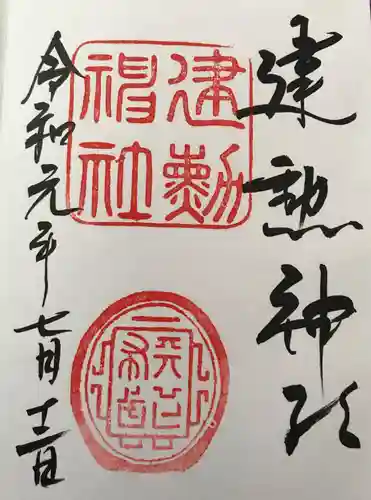 建勲神社
建勲
神社
令和元年七月十二日